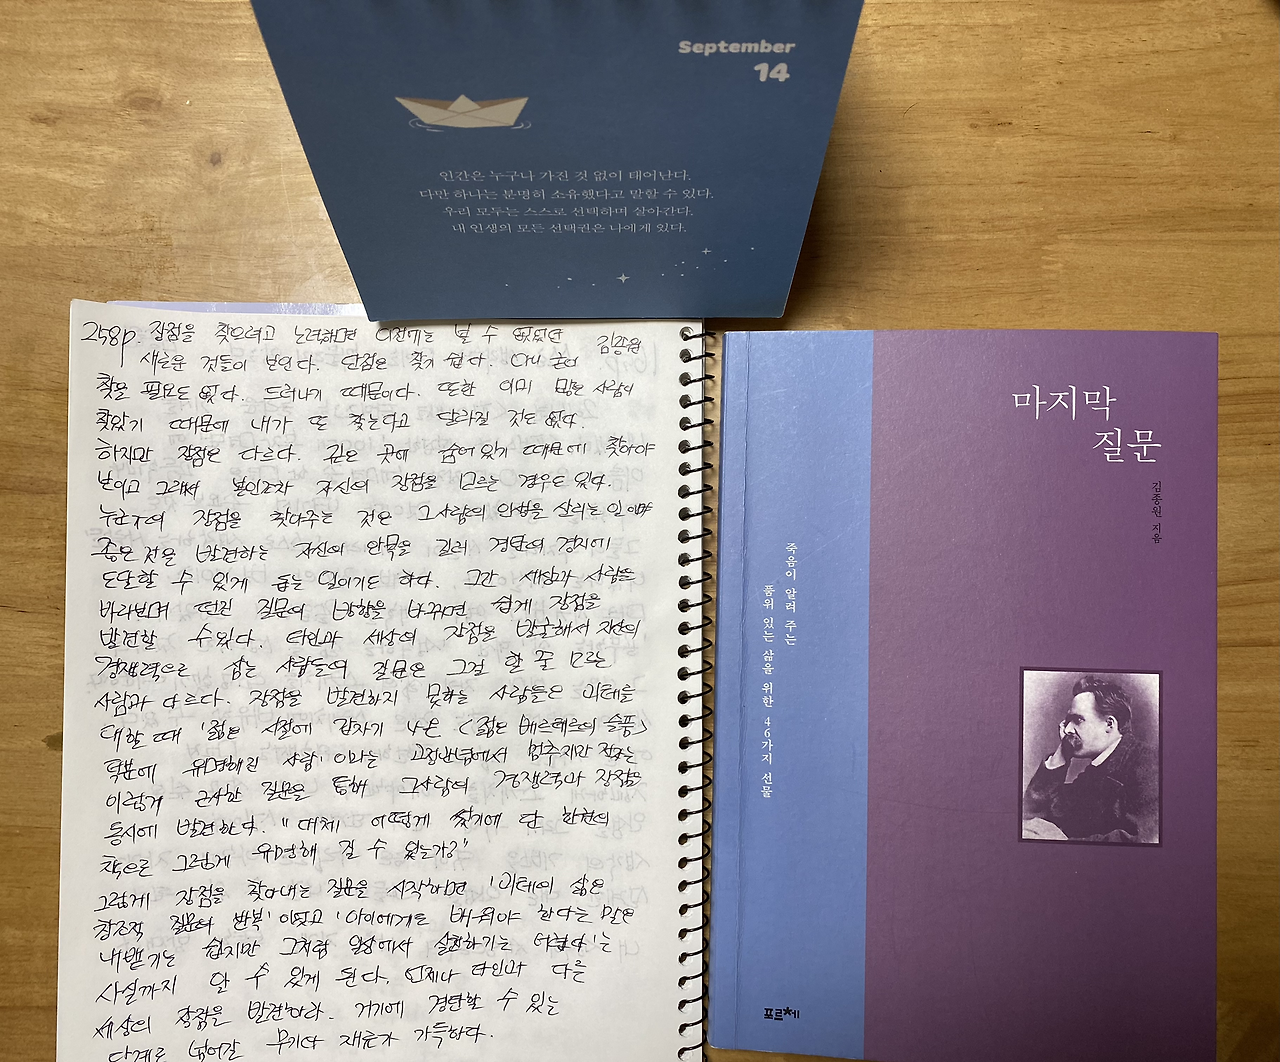 September
14
인간은 누구나 가진 것 없이 태어난다.
다만 하나는 분명히 소유했다고 말할 수 있다.
우리 모두는 스스로 선택하며 살아간다.
내 인생의 모든 선택권은 나에게 있다.
258p. 장점을 찾으려고 노력하면 이전에는 볼 수 없었던 김종원
새로운 것들이 보인다. 단점은 찾기 쉽다. 아니 굳이
찾을 필요도 없다. 드러나기 때문이다. 또한 이미 많은 사람이
찾았기 때문에 내가 또 찾는다고 달라질 것도 없다.
하지만 장점은 다르다. 깊은 곳에 숨어 있기 때문에 찾아야
보이고 그래서 본인조차 자신의 장점을 모르는 경우도 있다.
누군가의 장점을 찾아주는 것은 그사람의 인생을 살리는 일이며
좋은 것을 발견하는 자신의 안목을 길러 경탄의 경지에
도달할 수 있게 돕는 일이기도 하다. 그간 세상과 사람을
바라보며 던진 질문의 방향을 바꾸면 쉽게 장점을
발견할 수있다. 타인과 세상의 장점을 발굴해서 자신의
경쟁력으로 삼는 사람들의 질문은 그걸 할 줄 모르는
사람과 다르다. 장점을 발견하지 못하는 사람들은 괴테를
대할 때 '젊은 시절에 갑자기 나온 <젊은 베르테르의 슬픔>
덕분에 유명해진 사람' 이라는 고정관념에서 멈추지만 찾는
이렇게 근사한 질문을 통해 그사람의 경쟁력과 장점을
동시에 발견한다. "대체 어떻게 썼기에 단 한권의
책으로 그렇게 유명해 질 수 있는가?"
그렇게 장점을 찾아내는 질문을 시작하면 '괴테의 삶은
창조적 질문의 반복' 이었고 '아이에게도 배워야 한다는 말은
내뱉기는 쉽지만 그처럼 일상에서 실천하기는 어렵다'는
사실까지 알 수 있게 된다. 언제나 타인과 다른
세상의 장점을 발견하라. 거기에 경탄할 수 있는
단계로 넘어갈 무기와 재료가 가득하다.
마지막
질문
김종원 지음
죽음이 알려 주는
품위 있는 삶을 위한 46가지 선물
포르체